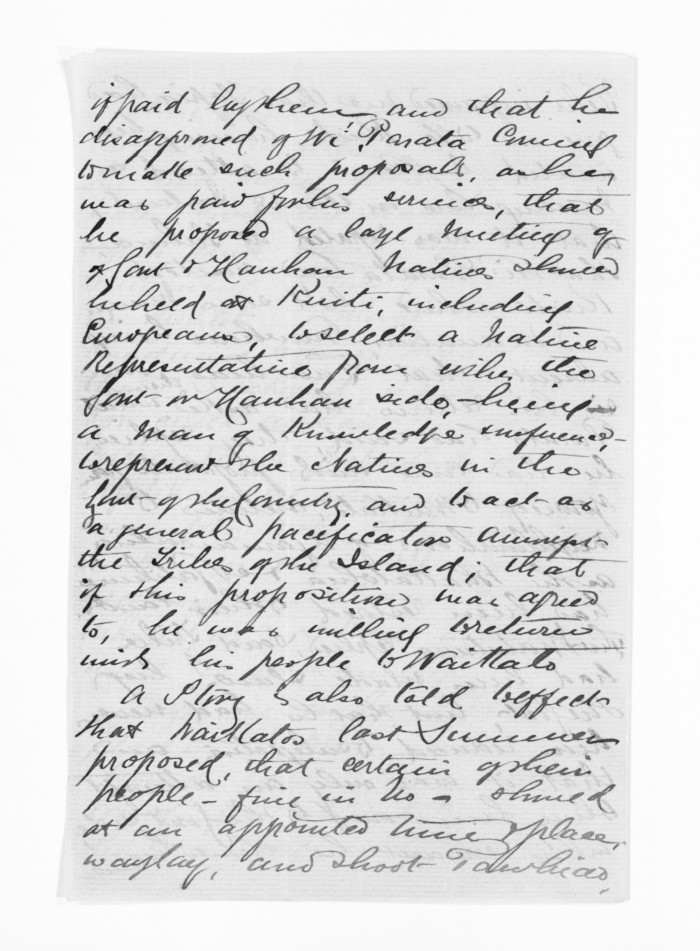 if paid by them, and that he
disapproved of Wi Parata Coming
to make such proposals, as he
was paid for his services, that
he proposed a large Meeting of
of Govt & Hauhau Natives should
be held at Kuiti, including
Europeans, to select a Native
Representative from either the
Govt or Hauhau side, being
a man of Knowledge & influence,
to represent the Natives in the
Govt of the Country, and to act as
a general pacificator amongst
the Tribes of the Island; that
if this proposition was agreed
to, he was willing to return
with his people to Waikato
A Story is also told to effect
that Waikatos last Summer
proposed, that certain of their
people - five in No - should
at an appointed time & place,
waylay, and shoot Tawhiao,